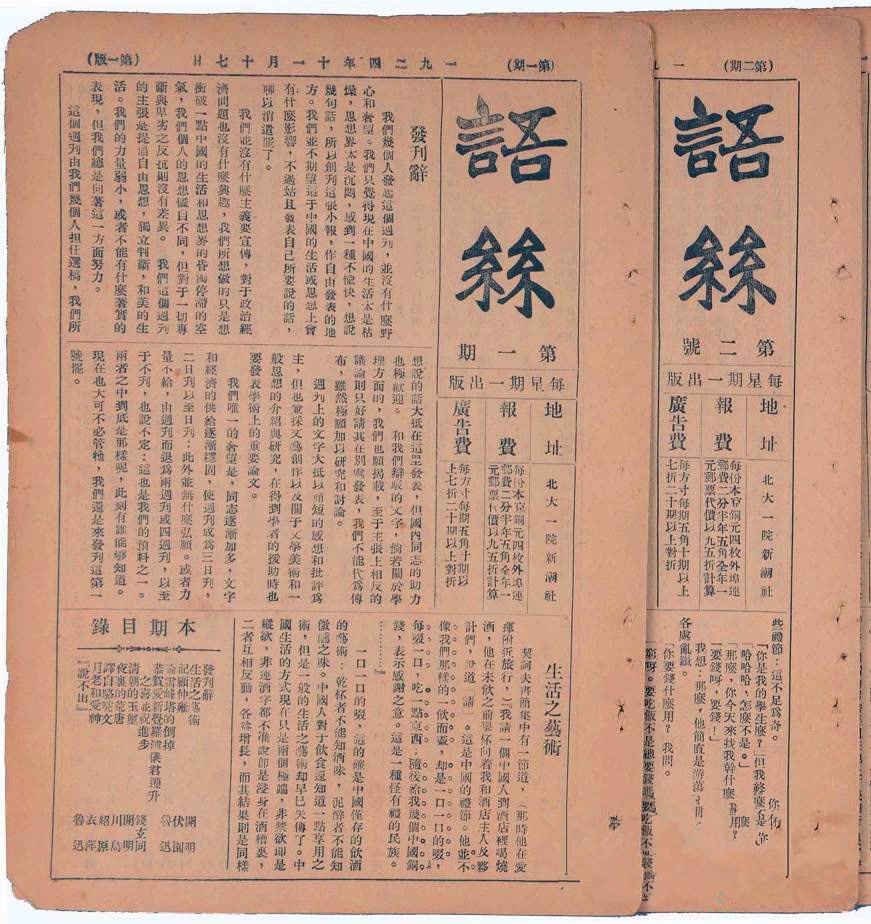 (第一期) 一九二四年十一月十七日 (第一版)
語絲
第一期
每星期一出版
地址 北大一院新潮社
報費 每份本京銅元四枚外埠連
郵費二分半年五角全年一
元郵票代價以九五折計算
廣告費 每方寸每期五角十期以
上七折二十期以上對折
發刊辭
我們幾個人發起這個週刊,並沒有什麼野
心和奢望。我們只覺得現在中國的生活太是枯
燥,思想界太是沉悶,感到一種不愉快,想說
幾句話,所以創刊這張小報,作自由發表的地
方。我們並不期望這于中國的生活或思想上會
有什麼影響,不過姑且發表自己所要說的話,
聊以消遣罷了。
我們並沒有什麼主義要宣傳,對于政治經
濟問題也沒有什麼興趣,我們所想做的只是想
衝破一點中國的生活和思想界的昏濁停滯的空
氣,我們個人的思想儘自不同,但對于一切專
斷與卑劣之反抗則沒有差異。我們這個週刊
的主張是提倡自由思想,獨立判斷,和美的生
活。我們的力量弱小,或者不能有什麼著實的
表現,但我們總是向著這一方面努力。
這個週刊由我們幾個人担任選稿,我們所
想說的話大抵在這里發表,但國內同志的助力
也極歡迎。和我們辯駁的文字,倘若關於學
理方面的,我們也願揭載,至于主張上相反的
議論則只好請其在別處發表,我們不能代為傳
布,雖然極願加以研究和討論。
週刊上的文字大抵以簡短的感想和批評為
主,但也兼採文藝創作以及關于文學美術和一
般思想的介紹與研究,在得到學者的援助時也
要發表學術上的重要論文。
我們唯一的奢望是,同志逐漸加多,文字
和經濟的供給逐漸穩固,使週刊成為三日刊,
二日刊以至日刊:此外並無什麼弘願。或者力
量不給,由週刊而退為兩週刊或四週刊,以至
于不刊,也說不定:這也是我們的預料之一。
兩者之中到底是那樣呢,此刻有誰能够知道。
現在也大可不必管牠,我們還是來發刊這第一
號罷。
生活之藝術
契訶夫書簡集中有一節道,(那時他在愛
琿附近旅行,)「我請一個中國人到酒店裡喝燒
酒,他在未飲之前舉杯向着我和酒店主人及夥
計們,說道『請』。這是中國的禮節。他並不
像我們那樣的一飲而盡,却是一口一口的啜,
每啜一口,吃一點東西;隨後給我幾個中國銅
錢,表示感謝之意。這是一種怪有禮的民族。
……」
一口一口的啜,這的確是中國僅存的飲酒
的藝術:乾杯者不能知酒味,泥醉者不能知
微醺之味。中國人對于飲食還知道一點享用之
術,但是一般的生活之藝術却早已失傳了。中
國生活的方式現在只是兩個極端,非禁欲即是
縱欲,非連酒字都不准說即是浸身在酒槽裏,
二者互相反動,各益增長,而其結果則是同樣
本期目錄
發刊辭
生活之藝術 開明
記顧仲雍 伏園
論雷峰塔的倒掉 魯迅
恭賀愛新覺羅溥儀君遷升
之喜並祝進步 錢玄同
清朝的玉璽 開明
夜裏的荒唐 川島
譯自駱駝文 紹原
月老和愛神 衣萍
『說不出』 魯迅
(第二期) 一九
語絲
第二號
每星期一出版
地址 北大一院新潮社
報費 每份本京銅元四枚外埠連
郵費二分半年五角全年一
元郵票代價以九五折計算
廣告費 每方寸每期五角十期以上
七折二十期以上對折
些禮節:這不足為奇。
「你是我的學生麼?」但我終麼是
「哈哈哈,怎麼不是。」
「那麼,你今天來找我幹什麼
「要錢呀,要錢!」
我想:那麼,他簡直是游蕩
各處亂鑽。
你要錢什麼用?我問。
窮呀。要吃飯不是總要錢嗎?要吃飯不